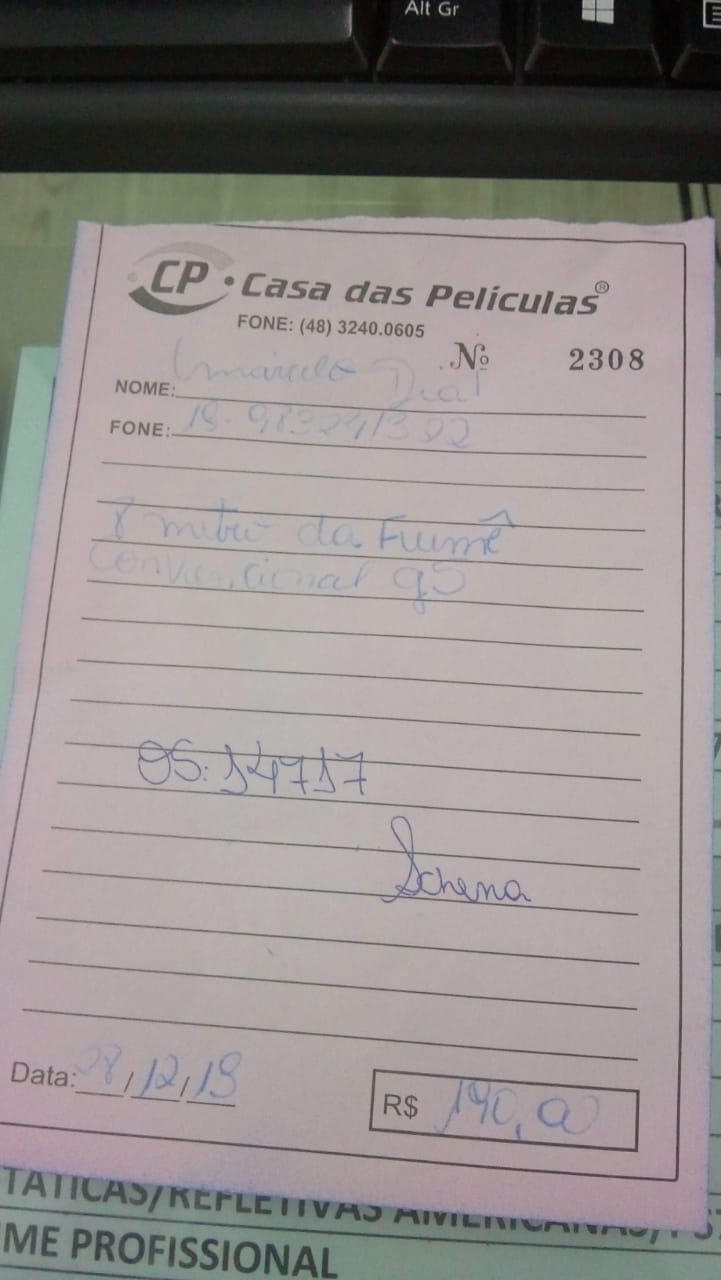 Alt Gr
CP • Casa das Películas®
FONE: (48) 3240.0605
Nº 2308
NOME: Marcelo
FONE:
8 metro da Fumê
Convencional g5
OS: 14717
Schena
Data: 28/12/19
R$ 190,00
TÁTICAS/REFLETIVAS AMERICANAS/
ME PROFISSIONAL